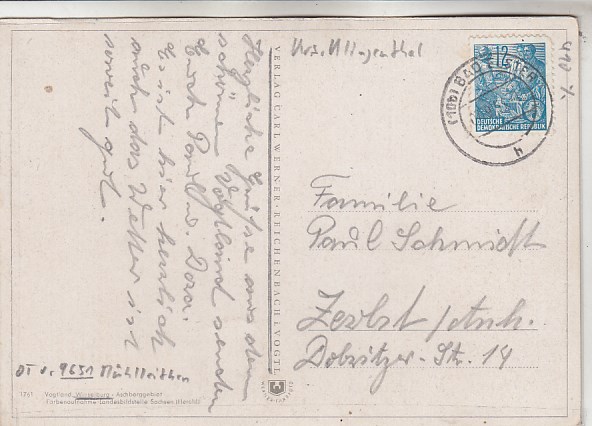 Herzliche Grüße aus dem
schönen Vogtland senden
Euch Paul u. Dora.
Es ist hier herrlich
auch das Wetter ist
soweit gut.
VERLAG CARL WERNER · REICHENBACH i. VOGTL
Krs. Klingenthal
12
DEUTSCHE
DEMOKRATISCHE REPUBLIK
(10b) BAD ELSTER
h
Familie
Paul Schmidt
Zerbst /Anh.
Dobritzer-Str. 14
OT v. 9651 Mühlleithen
1761 Vogtland Winselburg - Aschberggebiet
Farbenaufnahme Landesbildstelle Sachsen